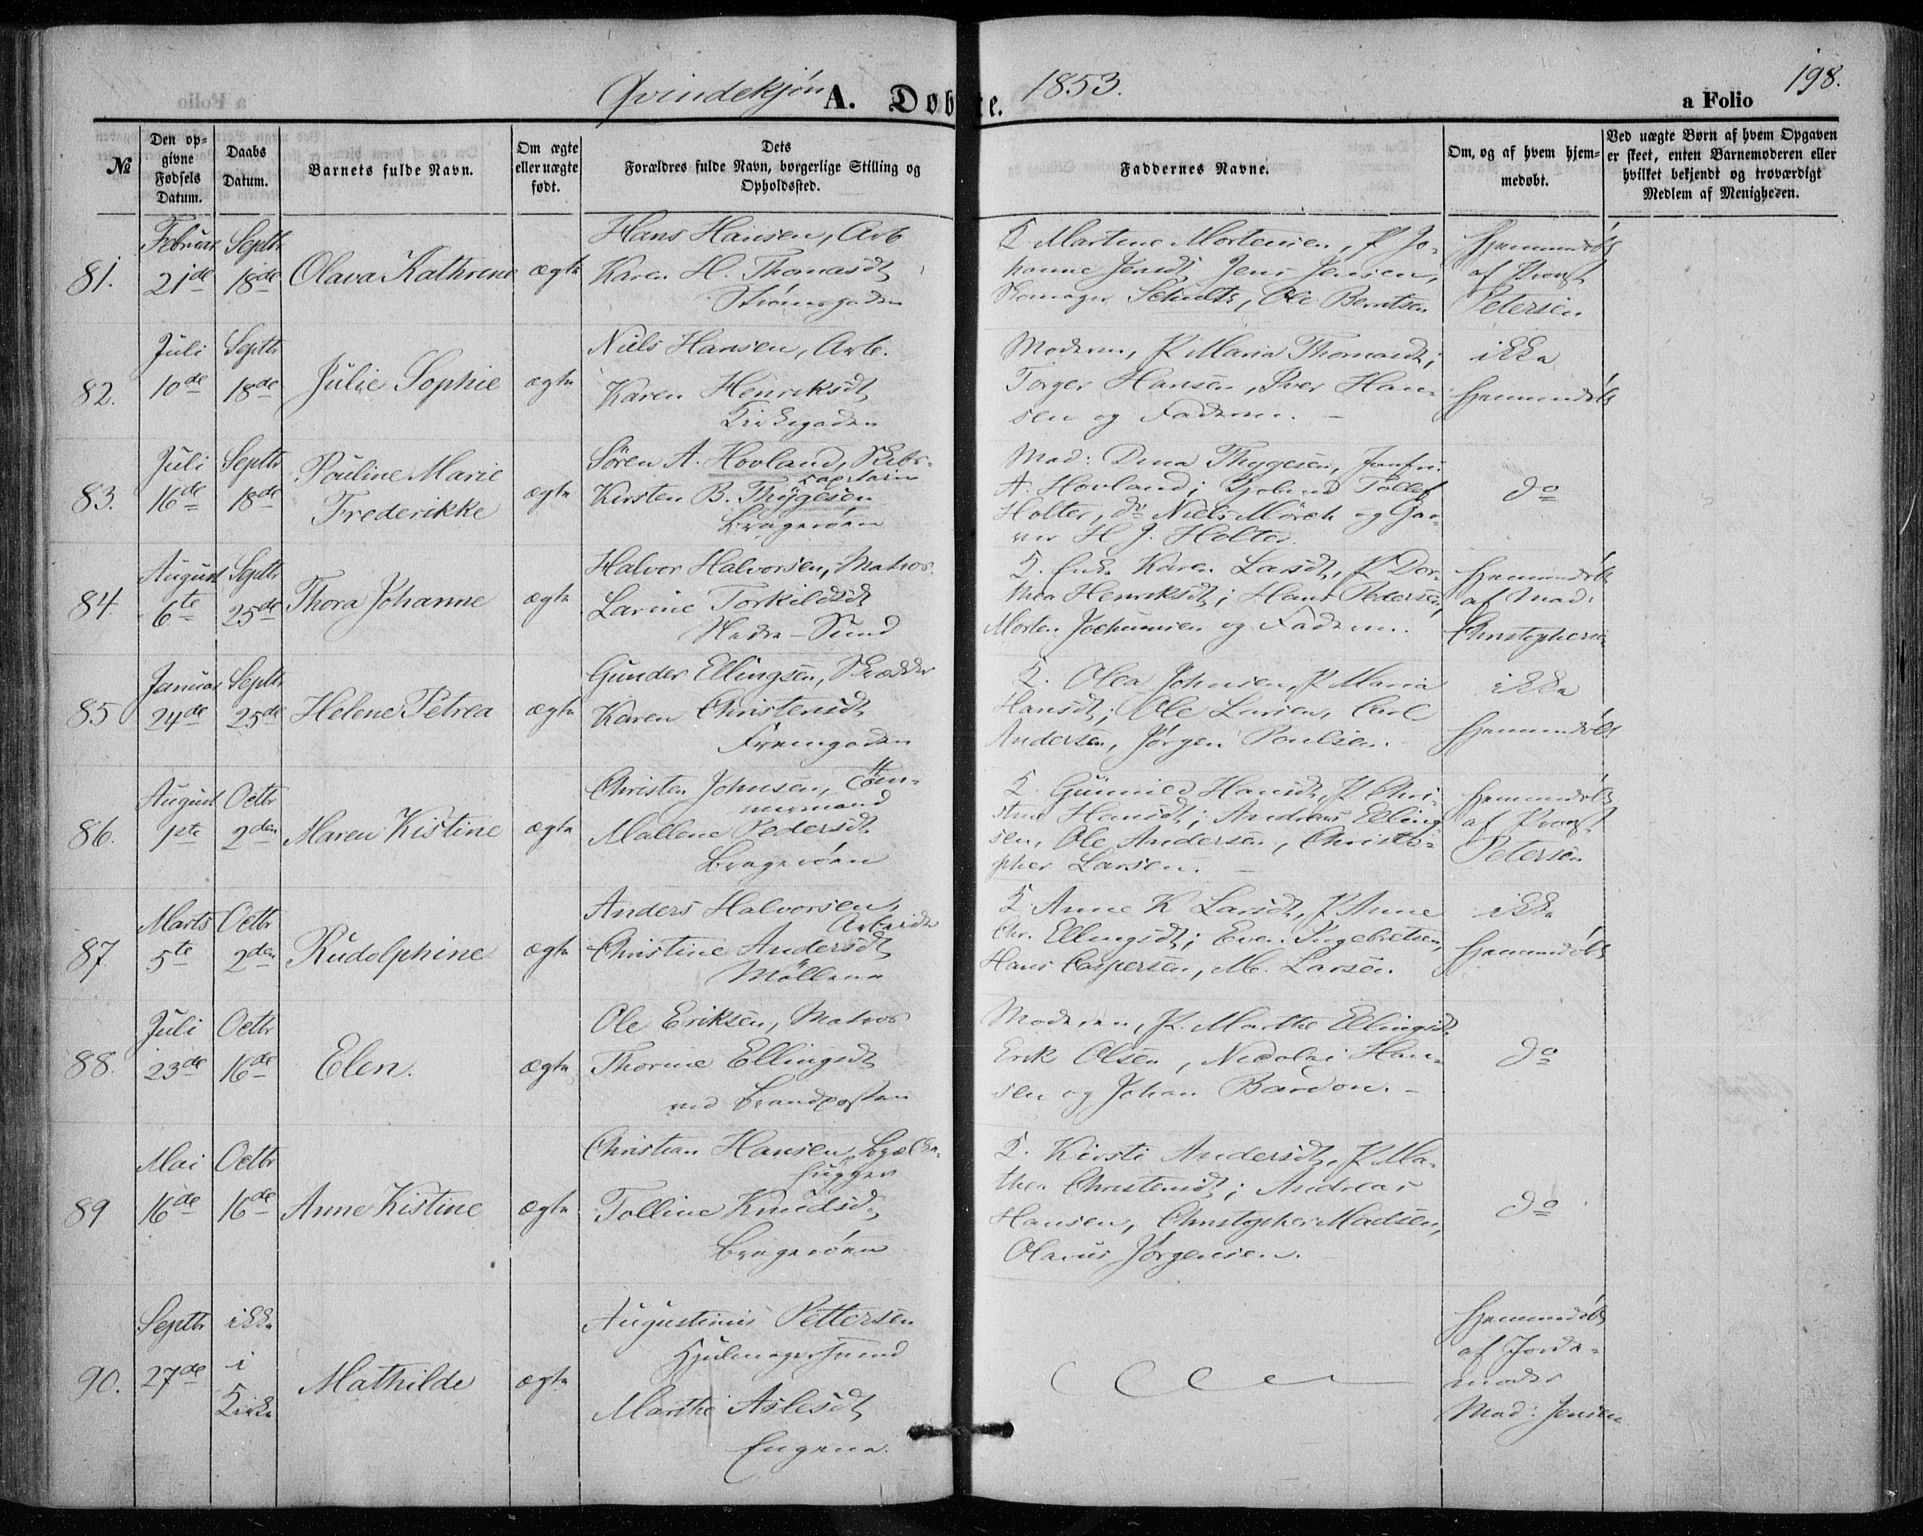 Qvindekjøn A. Døbte. 1853. a Folio 198.
№
Den opgivne Fødsels Datum.
Daabs Datum.
Barnets fulde Navn.
Om ægte eller uægte født.
Dets Forældres fulde Navn, borgerlige Stilling og Opholdssted.
Faddernes Navne.
Om, og af hvem hjemmedøbt.
Ved uægte Børn af hvem Opgaven er skeet, enten Barnemoderen eller hvilket bekjendt og troværdigt Medlem af Menigheden.
81. Februar 21de Septbr 18de Olava Kathrine ægte
Hans Hansen, Arb
Karen H. Thomasdt
Strømsgaden
K Martine Mortensen, P Jo-
hanne Jensdt, Jens Jensen,
Skomager Schultz, Ole Berntsen
Hjemmedøbt
af Provst
Petersen
82. Juli 10de Septbr 18de Julie Sophie ægte
Niels Hansen, Arb.
Karen Henriksdt
Kirkegaden
Moderen, P Maria Thomasdt;
Torger Hansen, Iver Han-
sen og Faderen.
ikke
hjemmedøbt
83. Juli 16de Septbr 18de Pouline Marie
Frederikke ægte
Søren A. Hovland, Skibs-
capitain
Kirsten B. Thygesen
Bragerøen
Mad: Dina Thygesen, Jomfru
A. Hovland; Tollef
Holter, do Niels Mörch og Gar-
ver H J. Holter.
do
84. August 6te Septbr 25de Thora Johanne ægte
Halvor Halvorsen, Matros.
Larine Torkildsdt
Nedre-Sund
K. Enke Karen Larsdt, P Dor-
thea Henriksdt; Hans Pedersen,
Morten Jochumsen og Faderen.
Hjemmedøbt
af Mad:
Christophersen
85 Januar 24de Septbr 25de Helene Petrea ægte
Gunder Ellingsen, Skrædder
Karen Christensdt
Fremgaden
K. Olea Johnsen, P Maria
Hansdt; Ole Larsen, Carl
Andersen, Jørgen Poulsen.
ikke
hjemmedøbt
86. August 1ste Octbr 2den Maren Kistine ægte
Christen Johnsen, Töm-
mermand
Mallene Pedersdt
Bragerøen
K. Gunnild Hansdt, P Chri-
stine Hansdt; Andreas Elling-
sen, Ole Andersen, Christo-
pher Larsen.
Hjemmedøbt
af Provst
Petersen
87. Marts 5te Octbr 2den Rudolphine ægte
Anders Halvorsen,
Arbeider
Christine Andersdt
Möllene
K Anne K Larsdt, P Anne
Chr. Ellingsdt; Even Ingebretsen,
Hans Caspersen, M. Larsen.
ikke
hjemmedøbt
88. Juli 23de Octbr 16de Elen. ægte
Ole Eriksen, Matros
Thorine Ellingsdt
ved Brandposten
Moderen, P. Marthe Ellingsdt.
Erik Olsen, Nicolai Han-
sen og Johan Bardon.
do
89 Mai 16de Octbr 16de Anne Kistine ægte
Christian Hansen, Bjælke-
hugger
Tolline Knudsdt
Bragerøen
K. Kirsti Andersdt, P Ma-
thea Christensdt; Andreas
Hansen, Christopher Madsen,
Olaus Jørgensen.
do
90. Septbr 27de ikke
i
Kirke Mathilde ægte
Augustinus Pettersen
Hjulmagersvend
Marthe Aslesdt
Engene.
Hjemmedøbt
af Jorde-
moder
Mad: Jensen